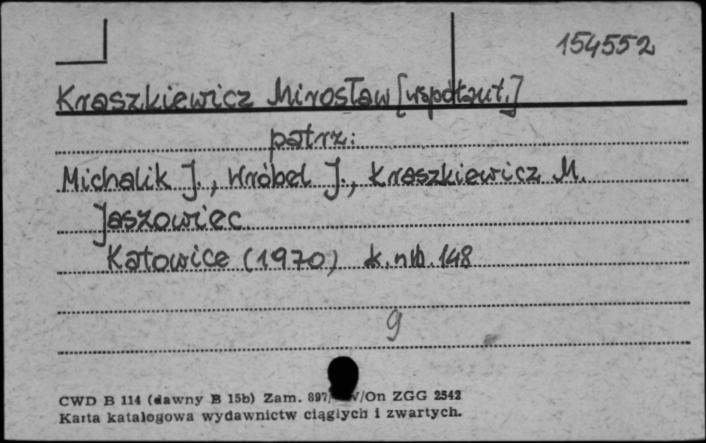 154552
Kraszkiewicz Mirosław [współaut.]
patrz:
Michalik J., Wróbel J., Kraszkiewicz M.
Jaszowiec
Katowice (1970) k. nlb. 148
9
CWD B 114 (dawny B 15b) Zam. 897/ V/On ZGG 2542
Karta katalogowa wydawnictw ciągłych i zwartych.